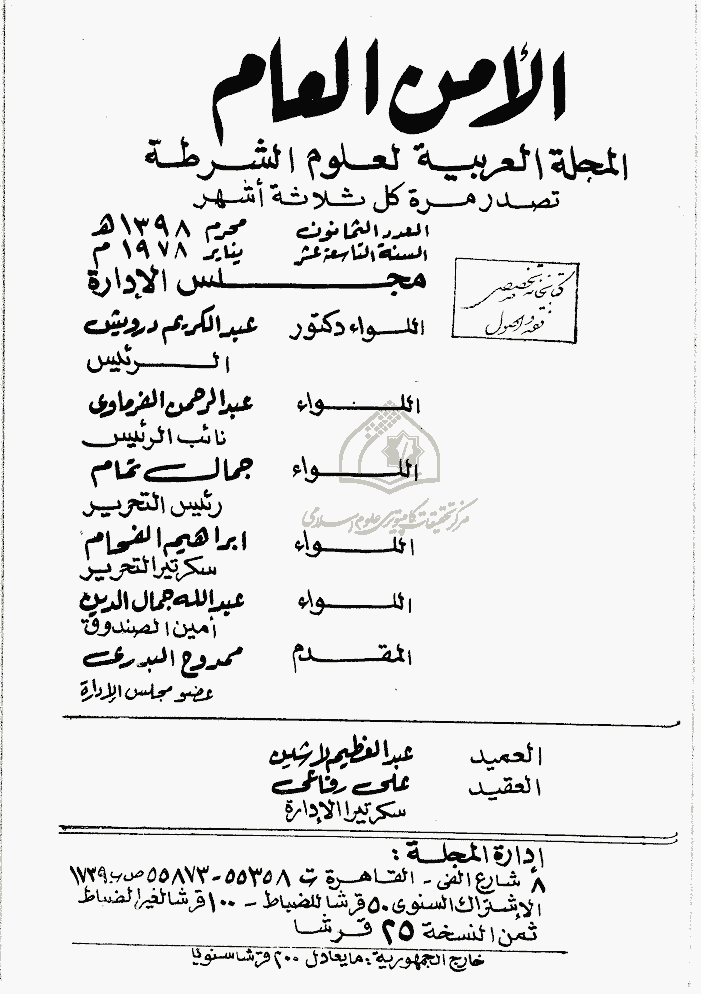 الأمن العام
المجلة العربية لعلوم الشرطة
تصدر مرة كل ثلاثة أشهر
العدد الثمانون محرم ١٣٩٨ هـ
السنة التاسعة عشر يناير ١٩٧٨ م
مجلس الإدارة
كتابخانه تخصصى
فقه و اصول
اللواء دكتور عبدالكريم درويش
الرئيس
اللواء عبدالرحمن الفرماوى
نائب الرئيس
اللواء جمال تمام
رئيس التحرير
مركز تحقيقات كامپيوترى علوم اسلامى
اللواء ابراهيم الفحام
سكرتير التحرير
اللواء عبدالله جمال الدين
أمين الصندوق
المقدم ممدوح البدرى
عضو مجلس الإدارة
العميد عبدالعظيم لاشين
العقيد على رفاعى
سكرتيرا الإدارة
إدارة المجلة :
٨ شارع الفى - القاهرة ت ٥٥٣٥٨ - ٥٥٨٧٣ ص ب ١٧٣٩
الإشتراك السنوى ٥٠ قرشا للضباط - ١٠٠ قرشا لغير الضباط
ثمن النسخة ٢٥ قرشا
خارج الجمهورية : مايعادل ٢٠٠ قرشا سنويا